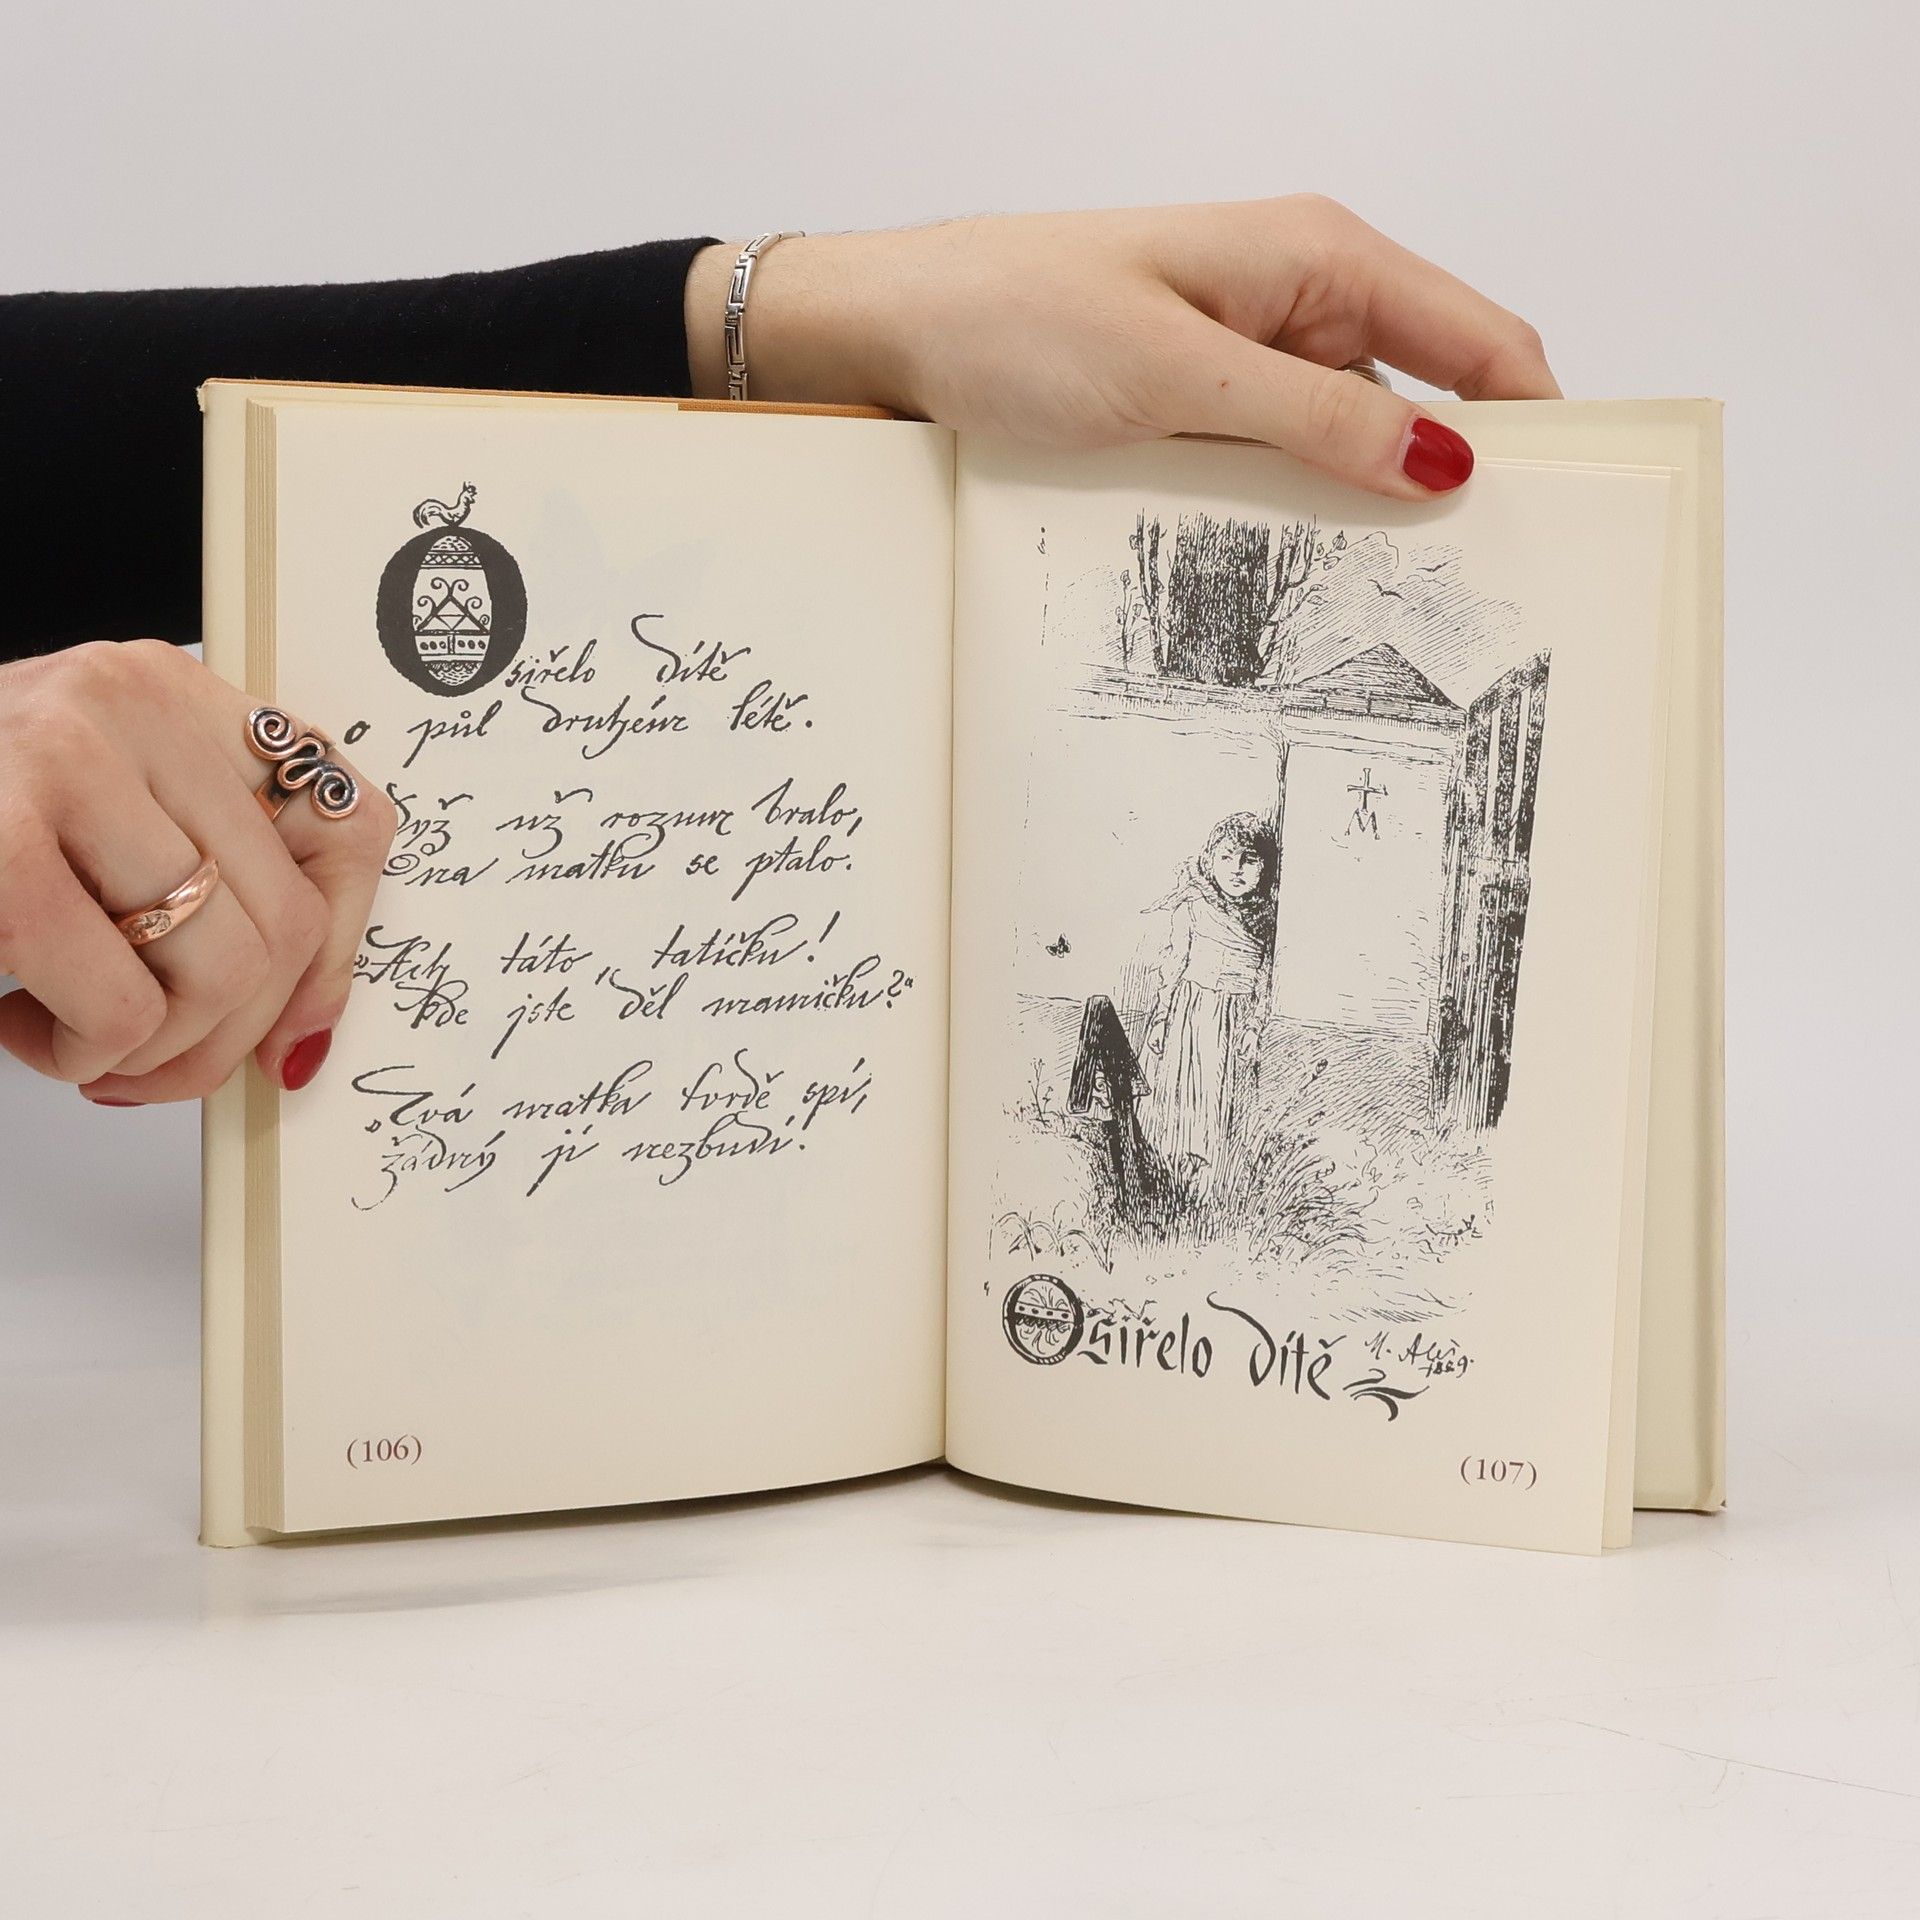 Osiřelo dítě
o půl druhém létě.
dyž už rozum bralo,
na matku se ptalo.
„Ach táto, tatíčku!
kde jste děl mamičku?“
„Tvá matka tvrdě spí,
žádný jí nezbudí!
(106)
M
Osiřelo dítě
M. Aleš
1889.
(107)